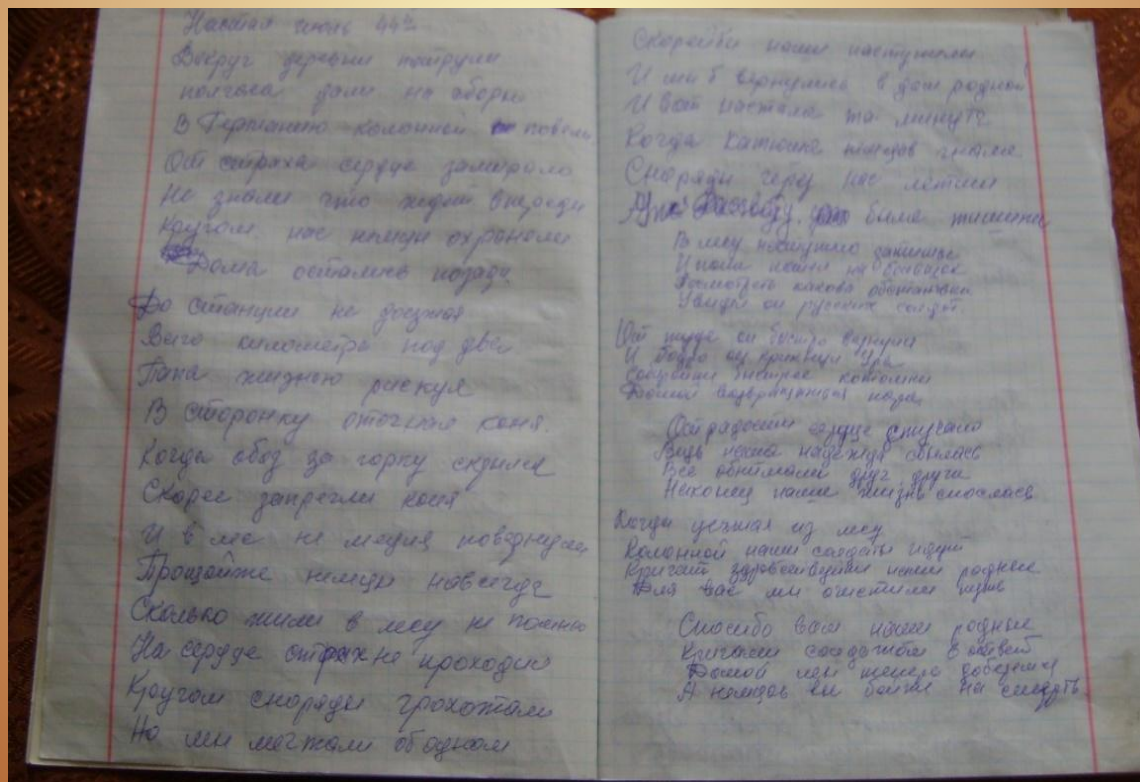 Настал июль 44г.
Вокруг деревни патрули
полчаса дали на сборы
В Германию колонной повели
От страха сердце замирало
Не знали что ждет впереди
Кругом нас немцы охраняли
Дома остались позади
До станции не доезжая
Всего километра под два
Папа жизнью рискуя
В сторонку отогнал коня.
Когда обоз за горку скрылся
Скорее запрягли коня
И в лес не медля повернули
Прощайте немцы навсегда
Сколько жили в лесу не помню
На сердце страх не проходил
Кругом снаряды грохотали
Но мы мечтали об одном
Скорей бы наши наступили
И мы б вернулись в дом родной
И вот настала та минута
Когда Катюша немцев гнала
Снаряды через нас летели
А к была тишина
В лесу наступило затишье
И папа пошел на большак
Посмотреть какова обстановка
Увидел он русских солдат.
Оттуда он быстро вернулся
И бодро он крикнул Ура
Собирайте быстрее котомки
Домой возвращаться пора.
От радости сердце стучало
Ведь наша надежда сбылась
Все обнимали друг друга
Наконец наша жизнь спаслась
Когда уезжая из лесу
Колонной наши солдаты идут
Кричат здравствуйте наши родные
Для вас мы очистили путь
Спасибо вам наши родные
Кричали солдатам в ответ
Домой мы теперь доберемся
А немцев вы бейте на смерть